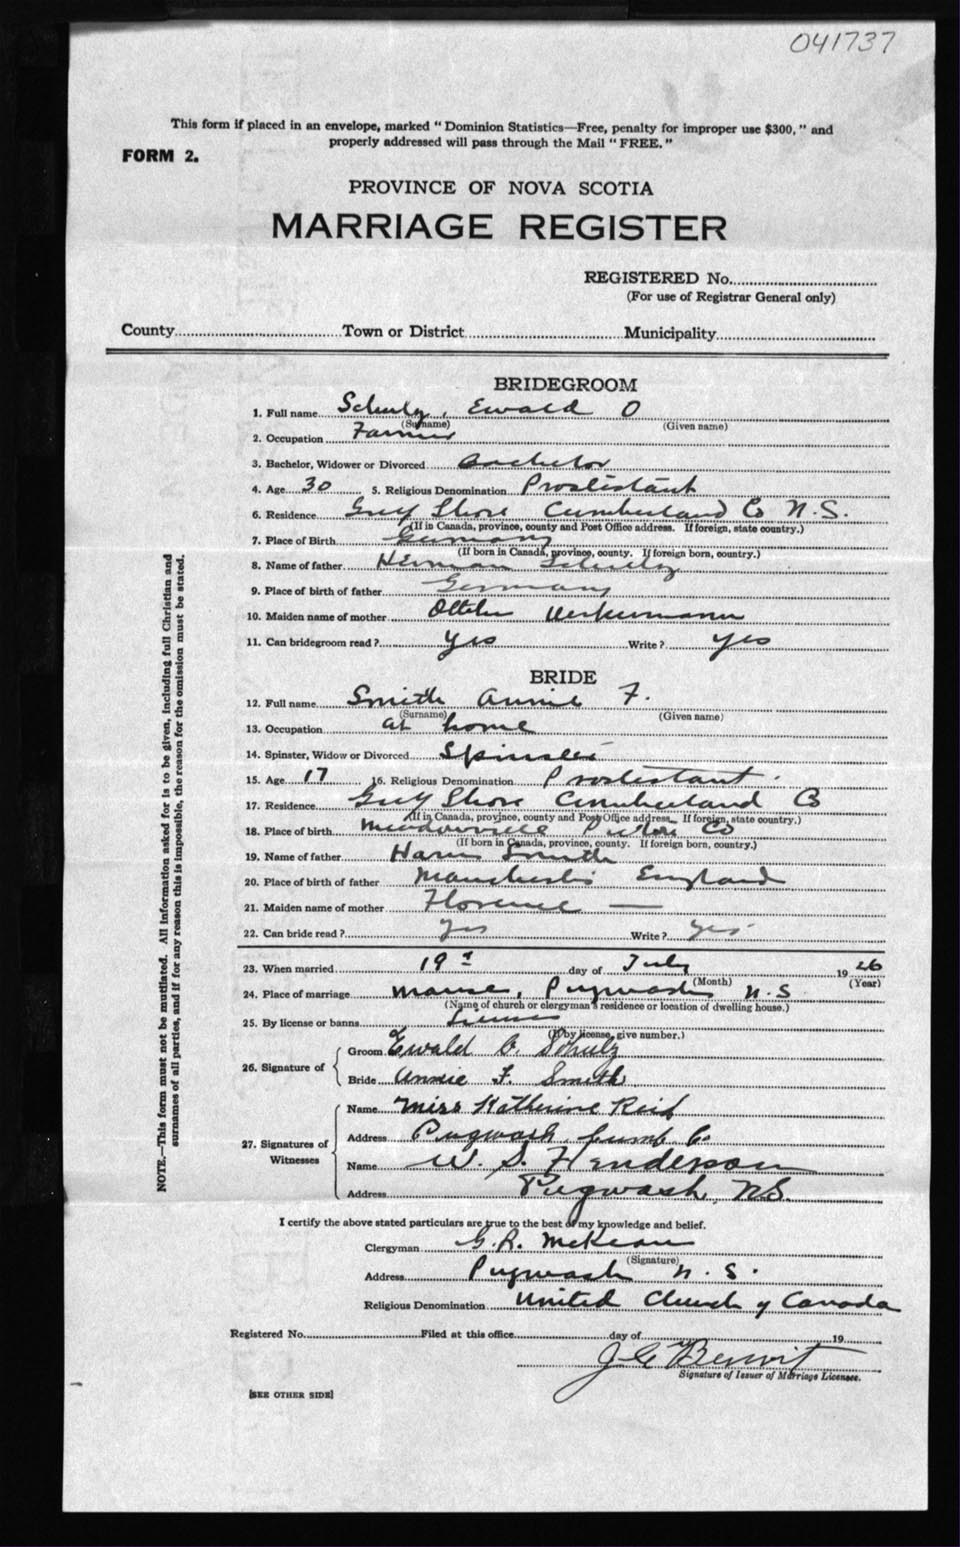 041737
This form if placed in an envelope, marked “ Dominion Statistics—Free, penalty for improper use $300, ” and
properly addressed will pass through the Mail “ FREE. ”
FORM 2.
PROVINCE OF NOVA SCOTIA
MARRIAGE REGISTER
REGISTERED No.
(For use of Registrar General only)
County Town or District Municipality
BRIDEGROOM
1. Full name Schulz, Ewald O
(Surname) (Given name)
2. Occupation Farmer
3. Bachelor, Widower or Divorced Bachelor
4. Age 30 5. Religious Denomination Prostestant
6. Residence Gulf Shore Cumberland Co N.S.
(If in Canada, province, county and Post Office address. If foreign, state country.)
7. Place of Birth Germany
(If born in Canada, province, county. If foreign born, country.)
8. Name of father Herman Schultz
9. Place of birth of father Germany
10. Maiden name of mother
11. Can bridegroom read ? yes Write ? yes
BRIDE
12. Full name Smith Annie F.
(Surname) (Given name)
13. Occupation at home
14. Spinster, Widow or Divorced Spinster
15. Age 17 16. Religious Denomination Prostestant
17. Residence Gulf Shore Cumberland Co
(If in Canada, province, county and Post Office address. If foreign, state country.)
18. Place of birth Pictou Co
(If born in Canada, province, county. If foreign born, country.)
19. Name of father Smith
20. Place of birth of father Manchester England
21. Maiden name of mother Florence —
22. Can bride read ? Yes Write ? Yes
23. When married 19th day of July 1926
(Month) (Year)
24. Place of marriage Manse, Pugwash N.S
(Name of church or clergyman's residence or location of dwelling house.)
25. By license or banns License
(If by license, give number.)
26. Signature of
Groom Ewald O. Schulz
Bride Annie F. Smith
27. Signatures of Witnesses
Name Miss Katherine Reid
Address Pugwash, Cumb Co.
Name W. S. Henderson
Address Pugwash, N.S.
I certify the above stated particulars are true to the best of my knowledge and belief.
Clergyman G. R. McKean
(Signature)
Address Pugwash N.S.
Religious Denomination United Church of Canada
Registered No. Filed at this office day of 19
Signature of Issuer of Marriage Licenses.
[SEE OTHER SIDE]
NOTE.—This form must not be mutilated. All information asked for is to be given, including full Christian and
surnames of all parties, and if for any reason this is impossible, the reason for the omission must be stated.